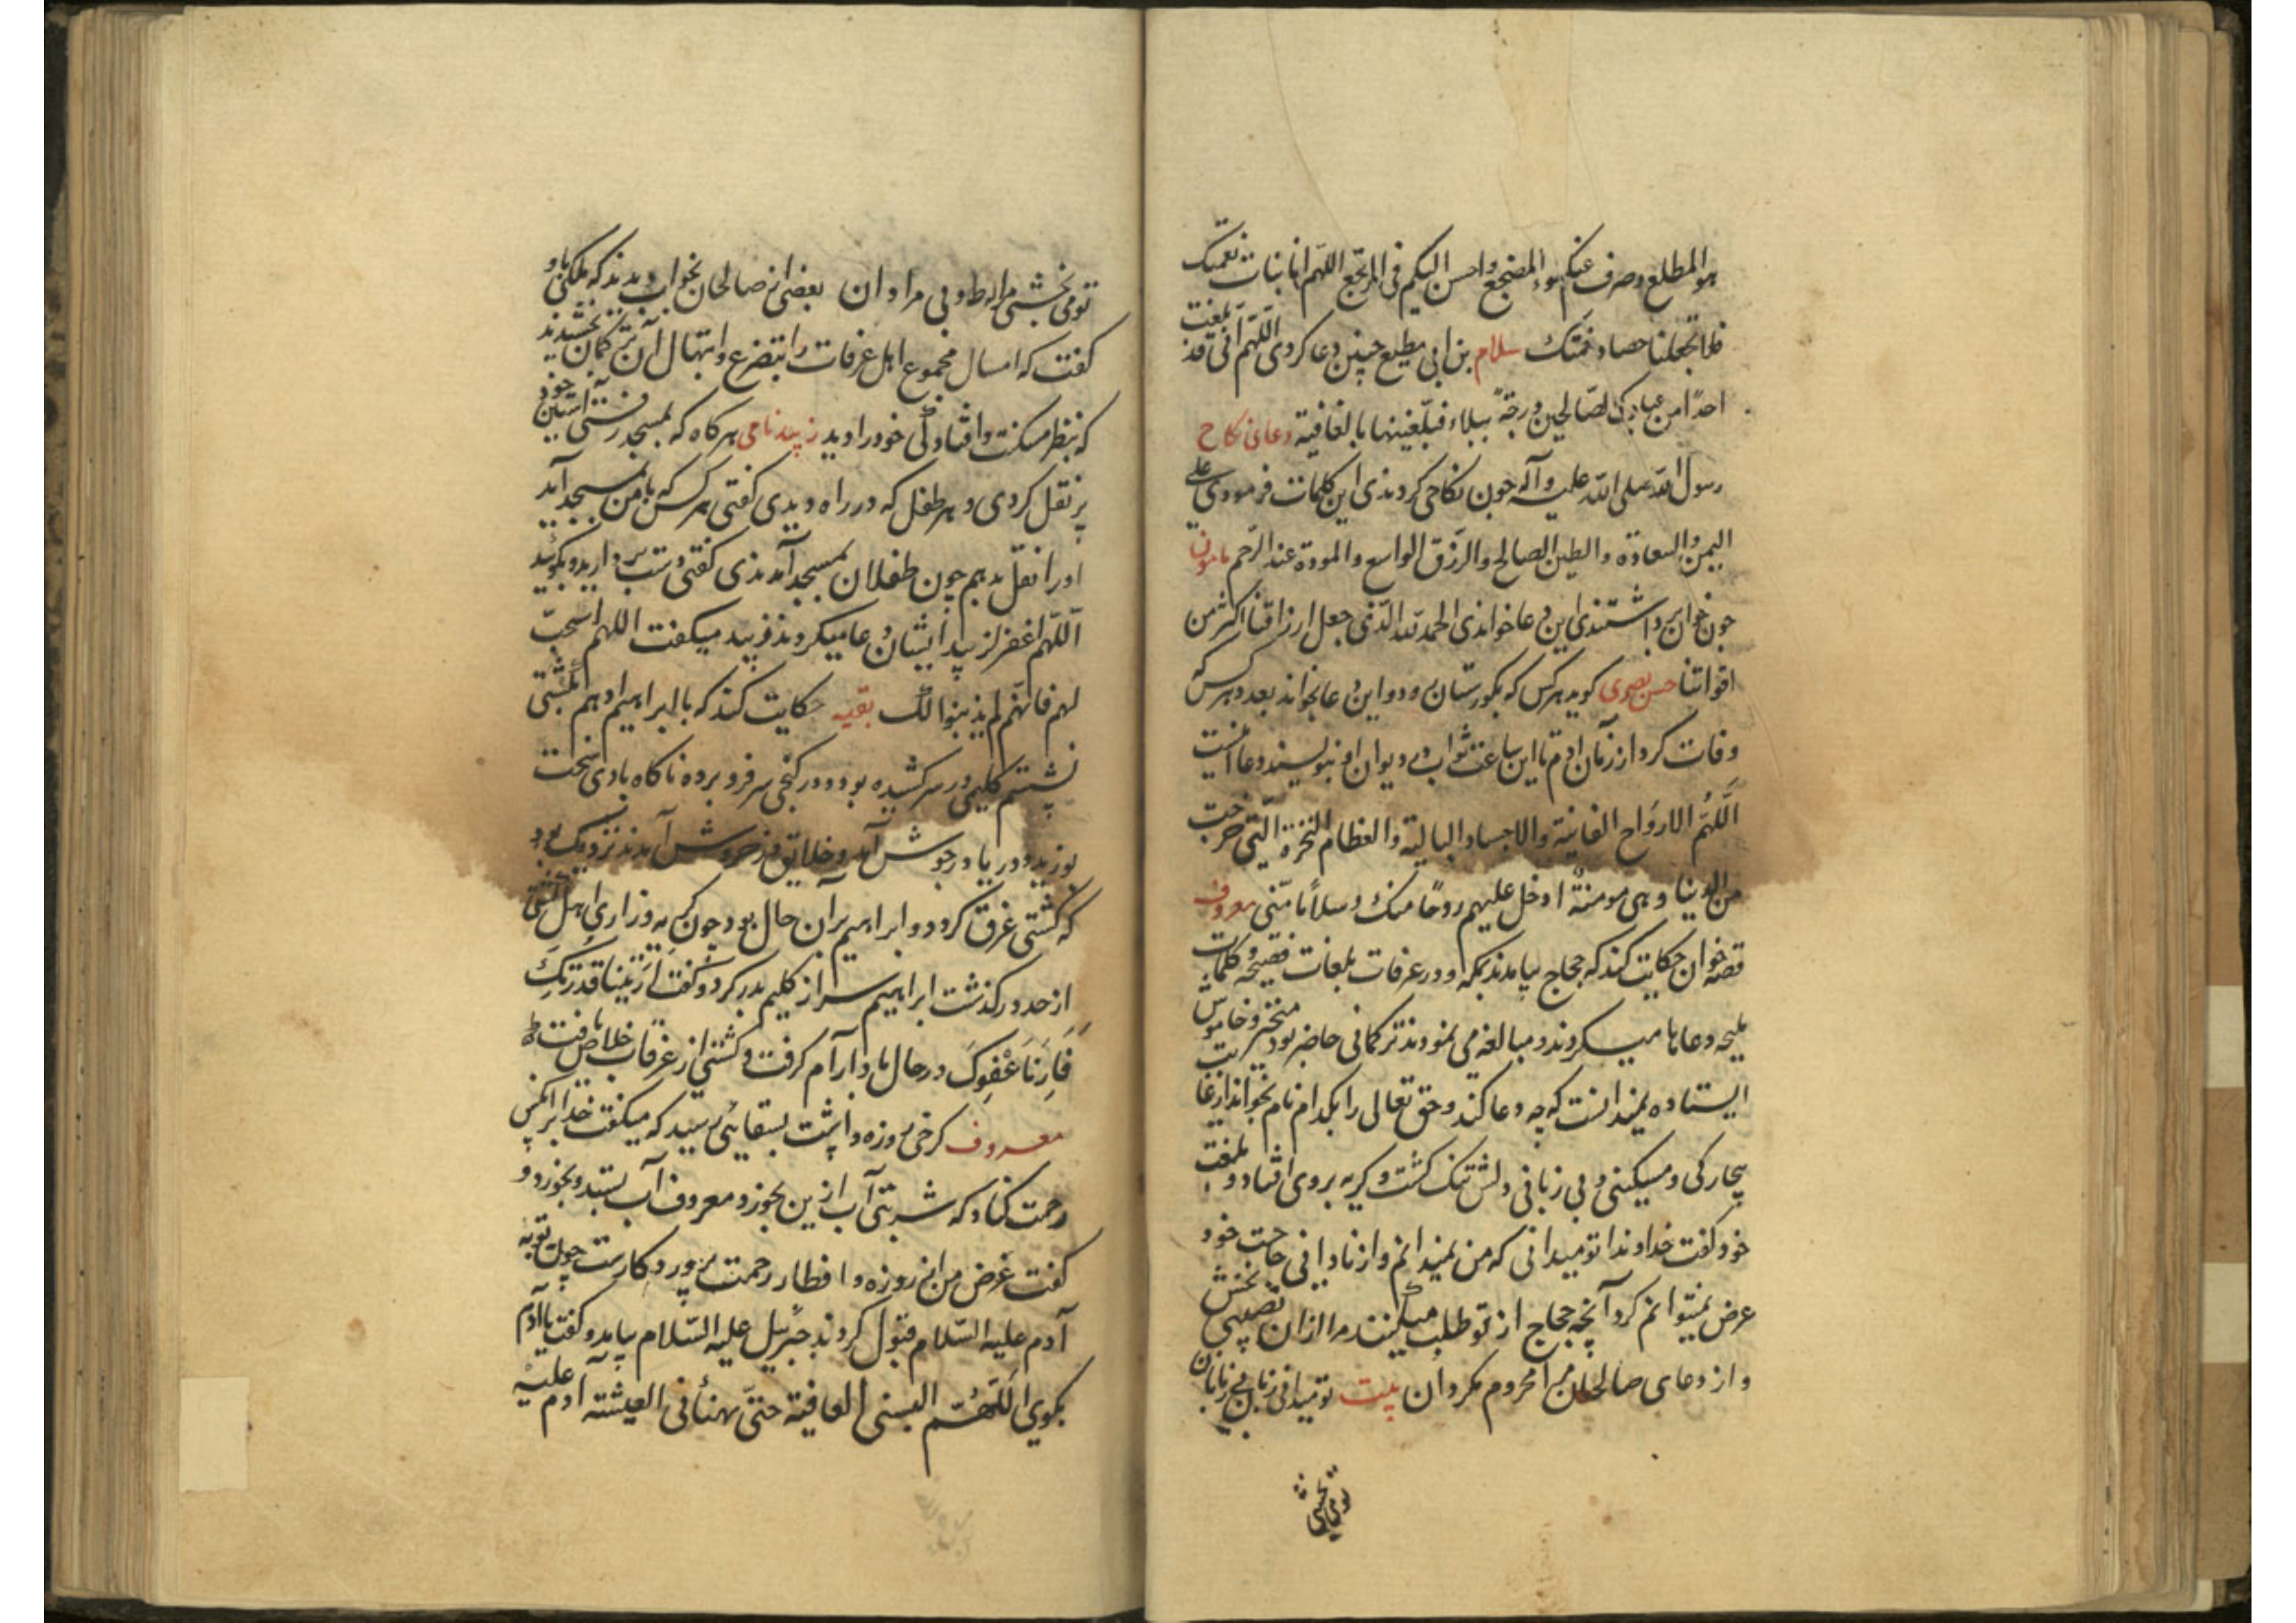 هو المطلع وصرف عنکم سوء المضجع واحسن الیکم فی المرجع اللهم انا نبات نعمتک
فلا تجعلنا حصاد نقمتک سلام بن ابی مطیع چنین دعا کردی اللَّهمّ ان قد بلغت
احدًا من عبادک الصّالحین درجةً ببلاء فبلّغنیها بالعافیة دعای نکاح
رسول الله صلی الله علیه وآله جون نکاحی کردندی این کلمات فرمودی علی
الیمن والسعادة والطیر الصالح والرّزق الواسع والمودة عند الرّحم مامون
جون خوان برداشتندی این دعا خواندی الحمد لله الّذی جعل ارزاقنا اکثر من
اقواتنا حسن بصری کوید هر کس که بکورستان رود و این دعا بخواند بعدد هر کس که
وفات کرد از زمان آدم تا این ساعت ثواب در دیوان او بنویسند دعا اینست
اَللّهُمّ الارواح الفانیة والاجساد البالیة والعظام النخرة الّتی خرجت
من الدنیا وهی مومنةٌ ادخل علیهم روحًا منک وسلامًا منّی معروف
قصه خوان حکایت کند که حجاج بیامدند بمکه و در عرفات بلغات فصیحه و کلمات
ملیحه دعاها میکردند و مبالغه می نمودند ترکمانی حاضر بود متحیر و خاموش
ایستاده نمیدانست که چه دعا کند و حق تعالی را بکدام نام بخواند از غایت
بیچارکی و مسکینی و بی زبانی دلش تنک کشت و کریه بر وی افتاد و بلغت
خود کفت خداوندا تو میدانی که من نمیدانم و از نادانی حاجت خود
عرض نمیتوانم کرد آنچه حجاج از تو طلب میکنند مرا از ان نصیبی بخش
و از دعای صالحان مرا محروم مکردان بیت تو میدانی زبان بی زبانان
تو می بخشی
تو می بخشی مراد نامرادان بعضی از صالحان بخواب دیدند که ملکی باو
کفت که امسال مجموع اهل عرفات را بتضرع و ابتهال آن ترکمان بخشیدند
که بنظر مسکنت و افتادکی خود را دید زبید نامی هر کاه که بمسجد رفتی آستین خود
پر نقل کردی و هر طفل که در راه دیدی کفتی هر کس که با من بمسجد آید
اورا نقل بدهم چون طفلان بمسجد آمدندی کفتی دست بردارید و بکویید
اَللّهم اغفر لزبید ایشان دعا میکردند زبید میکفت اللهم استجب
لهم فانّهم لم یذنبوا لک بقیه حکایت کند که با ابراهیم ادهم بکشتی
نشستم کلیمی در سر کشیده بود و در کنجی سر فرو برده ناکاه بادی سخت
بوزید و دریا در جوش آمد و خلایق در خروش آمدند نزدیک بود
که کشتی غرق کردد و ابراهیم بران حال بود جون کریه و زاری اهل کشتی
از حد در کذشت ابراهیم سر از کلیم بدر کرد و کفت اَرَیتَنا قُدرَتَکَ
فَاَرِنَا عَفْوَکَ در حال باد آرام کرفت و کشتی از غرقاب خلاص یافت
معروف کرخی روزه داشت بسقایی رسید که میکفت خدا بر انکس
رحمت کناد که شربتی آب ازین بخورد معروف آب بستد و بخورد و
کفت غرض من ازین روزه و افطار رحمت پرورد کارست چون توبه
آدم علیه السّلام قبول کردند جبریل علیه السّلام بیامد و کفت یا آدم
بکوی اَللّهُمّ البسنی العافیة حتی تهنأنی العیشة آدم علیه